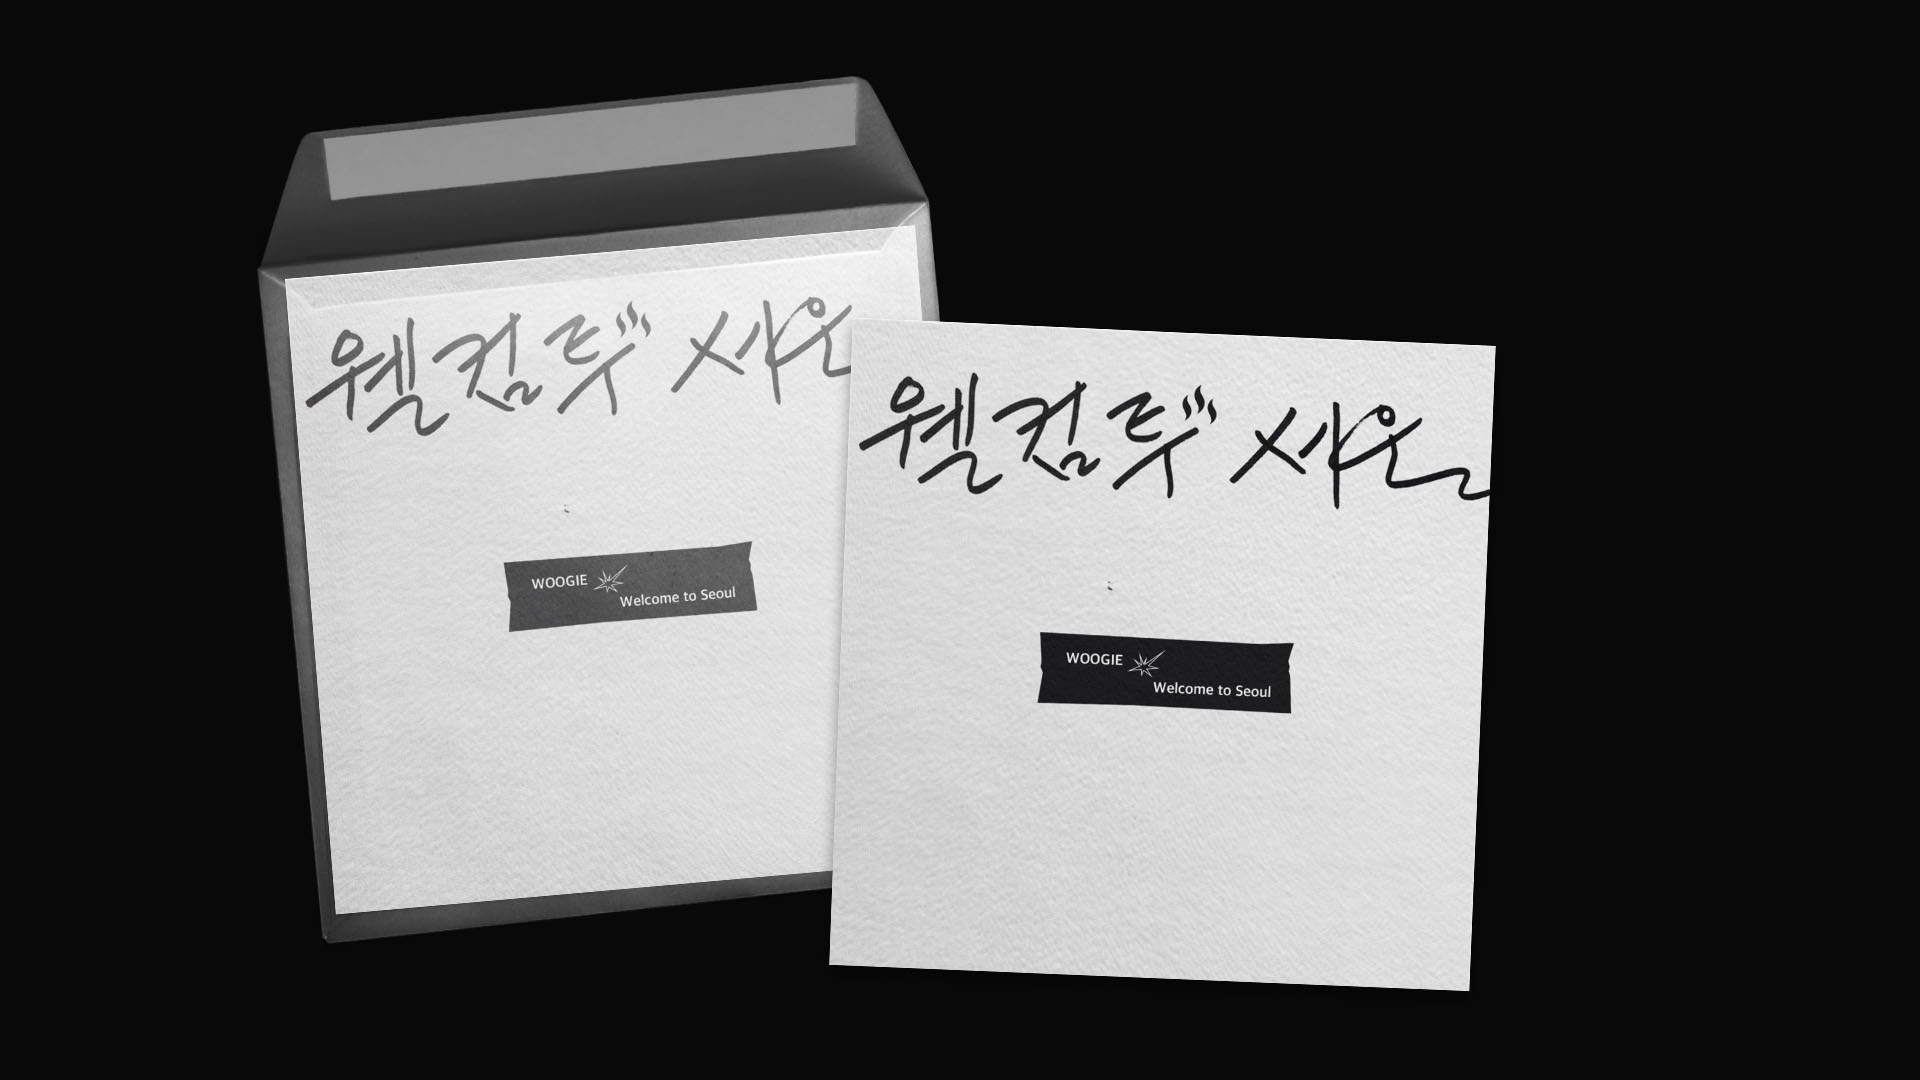 웰컴투 서울
WOOGIE
Welcome to Seoul
웰컴투 서울
WOOGIE
Welcome to Seoul